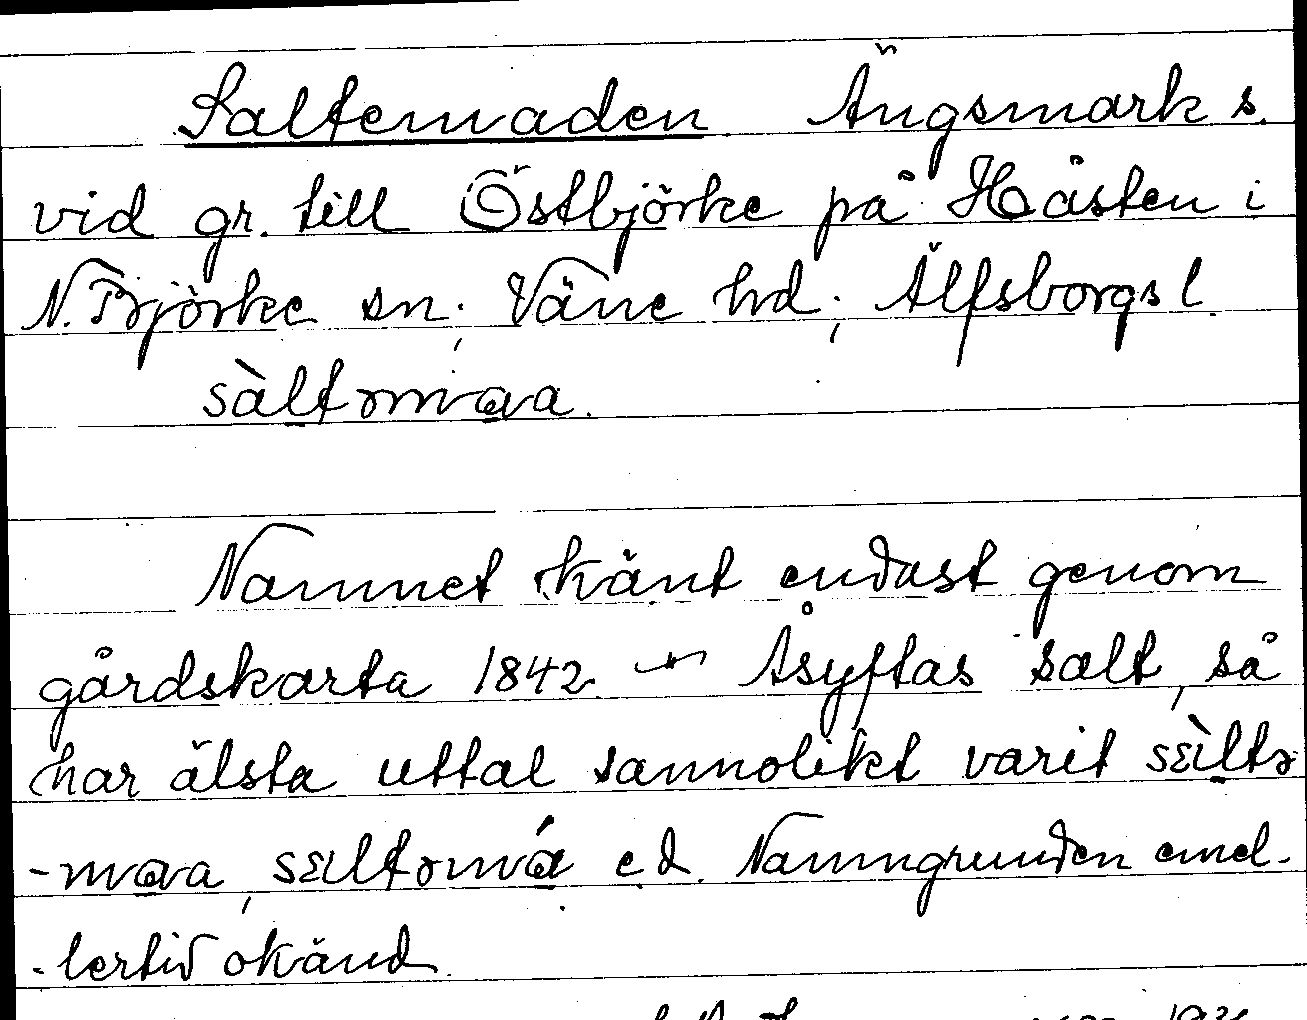 Saltemaden. Ängsmark s.
vid gr. till Östbjörke på Håsten i
N. Björke sn; Väne hd; Älfsborgs l.
sàltəmaa.
Namnet känt endast genom
gårdskarta 1842. — Åsyftas salt, så
har älsta uttal sannolikt varit sæ̀ltə
-maa, sæltəmá e.d. Namngrunden emel-
-lertid okänd.